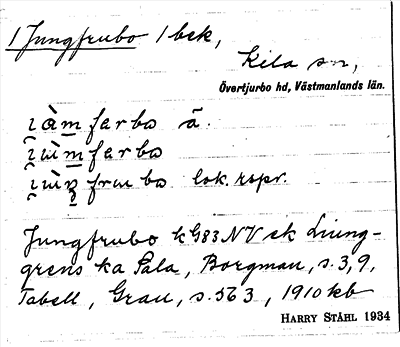 1 Jungfrubo 1 bsk,
Kila sn,
Övertjurbo hd, Västmanlands län.
farbo ä.
farbo
frubo lok. rspr.
Jungfrubo kG83NV ek Ljung-
grens ka Sala, Borgman, s. 3, 9,
Tabell, Grau, s. 563, 1910 kb
HARRY STÅHL 1934